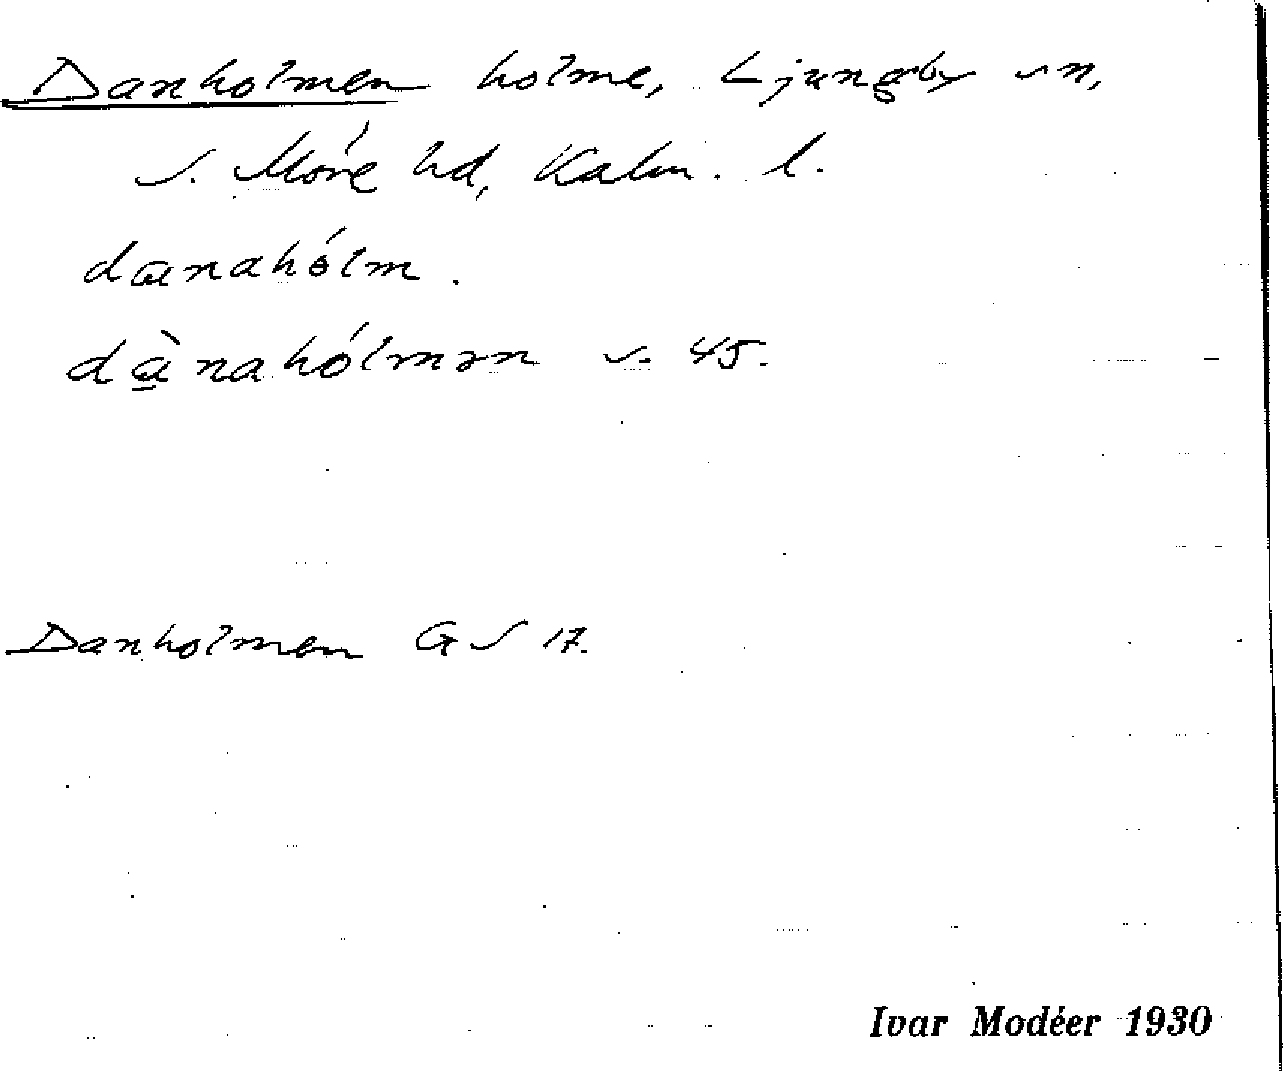 Danholmen holme, Ljungby sn,
s. Möre hd, Kalm. l.
danahólm.
dànahólmən s. 45.
Danholmen GS 17.
Ivar Modéer 1930